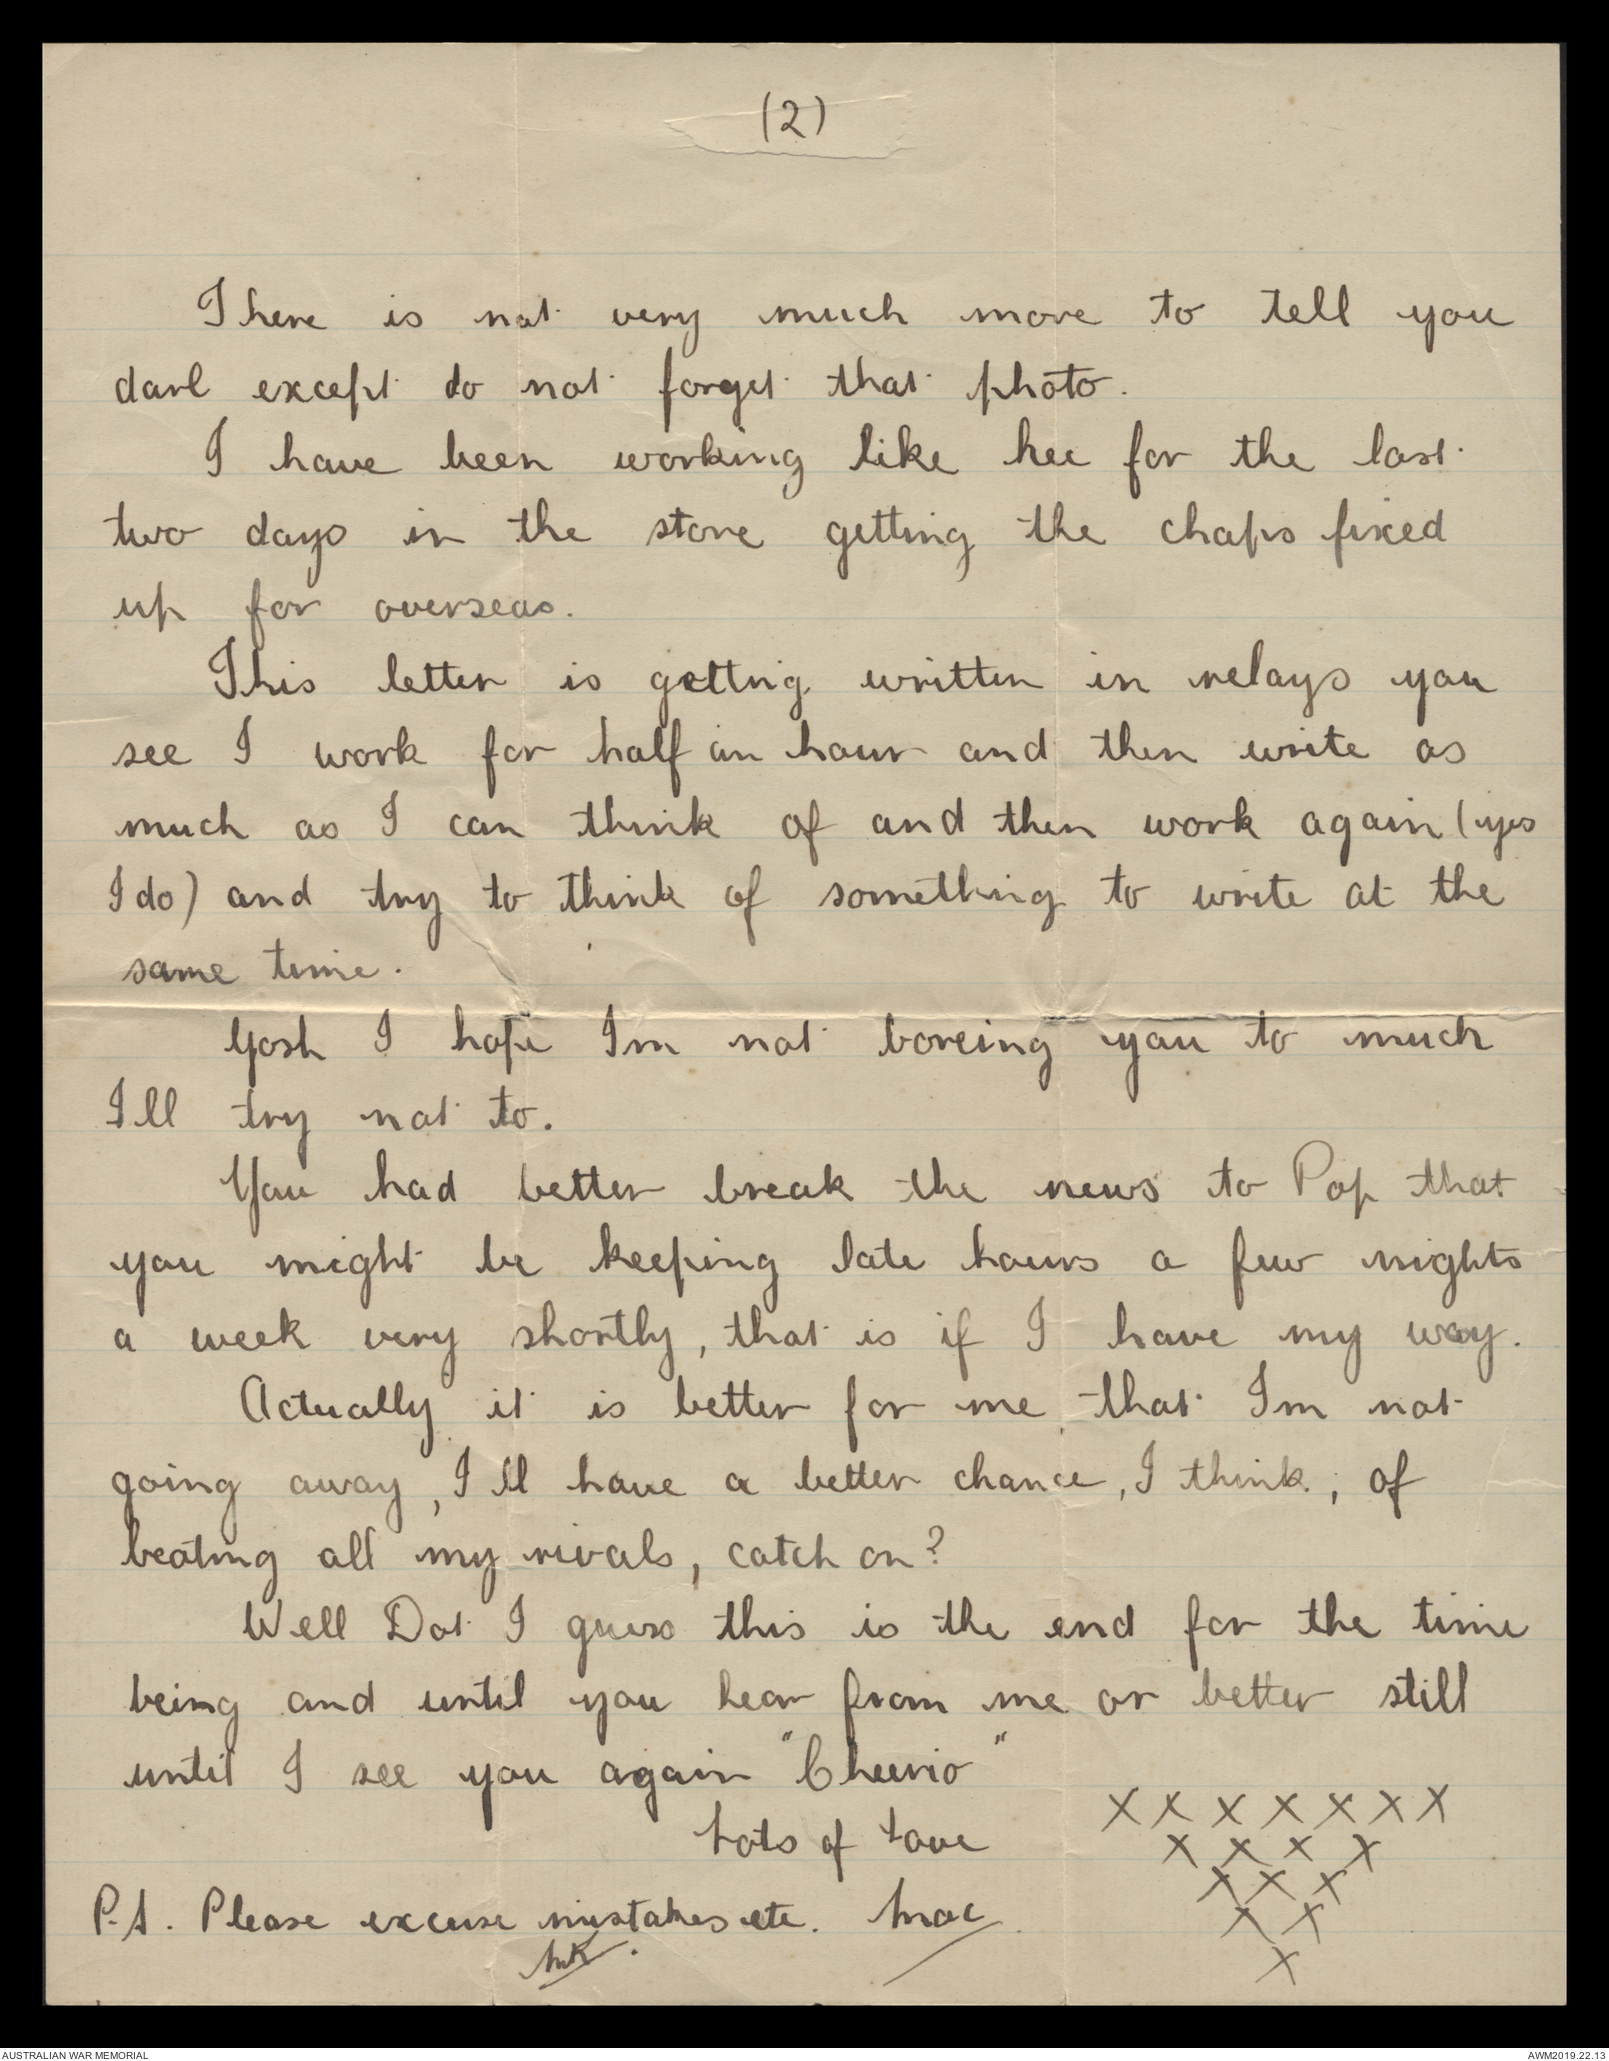 (2)
There is not very much more to tell you
darl except do not forget that photo.
I have been working like hec for the last
two days in the store getting the chaps fixed
up for overseas.
This letter is gettng written in relays you
see I work for half an hour and then write as
much as I can think of and then work again (yes
I do) and try to think of something to write at the
same time.
Gosh I hope Im not boreing you to much
Ill try not to.
You had better break the news to Pop that
you might be keeping late hours a few nights
a week very shortly, that is if I have my way.
Actually it is better for me that Im not
going away, I ll have a better chance, I think, of
beating all my rivals, catch on?
Well Dot I guess this is the end for the time
being and until you hear from me or better still
until I see you again "Cheerio"
Lots of Love
X X X X X X X
X X X X
X X X
X X
X
P.S. Please excuse mistakes etc. Mac
AUSTRALIAN WAR MEMORIAL
AWM2019.22.13